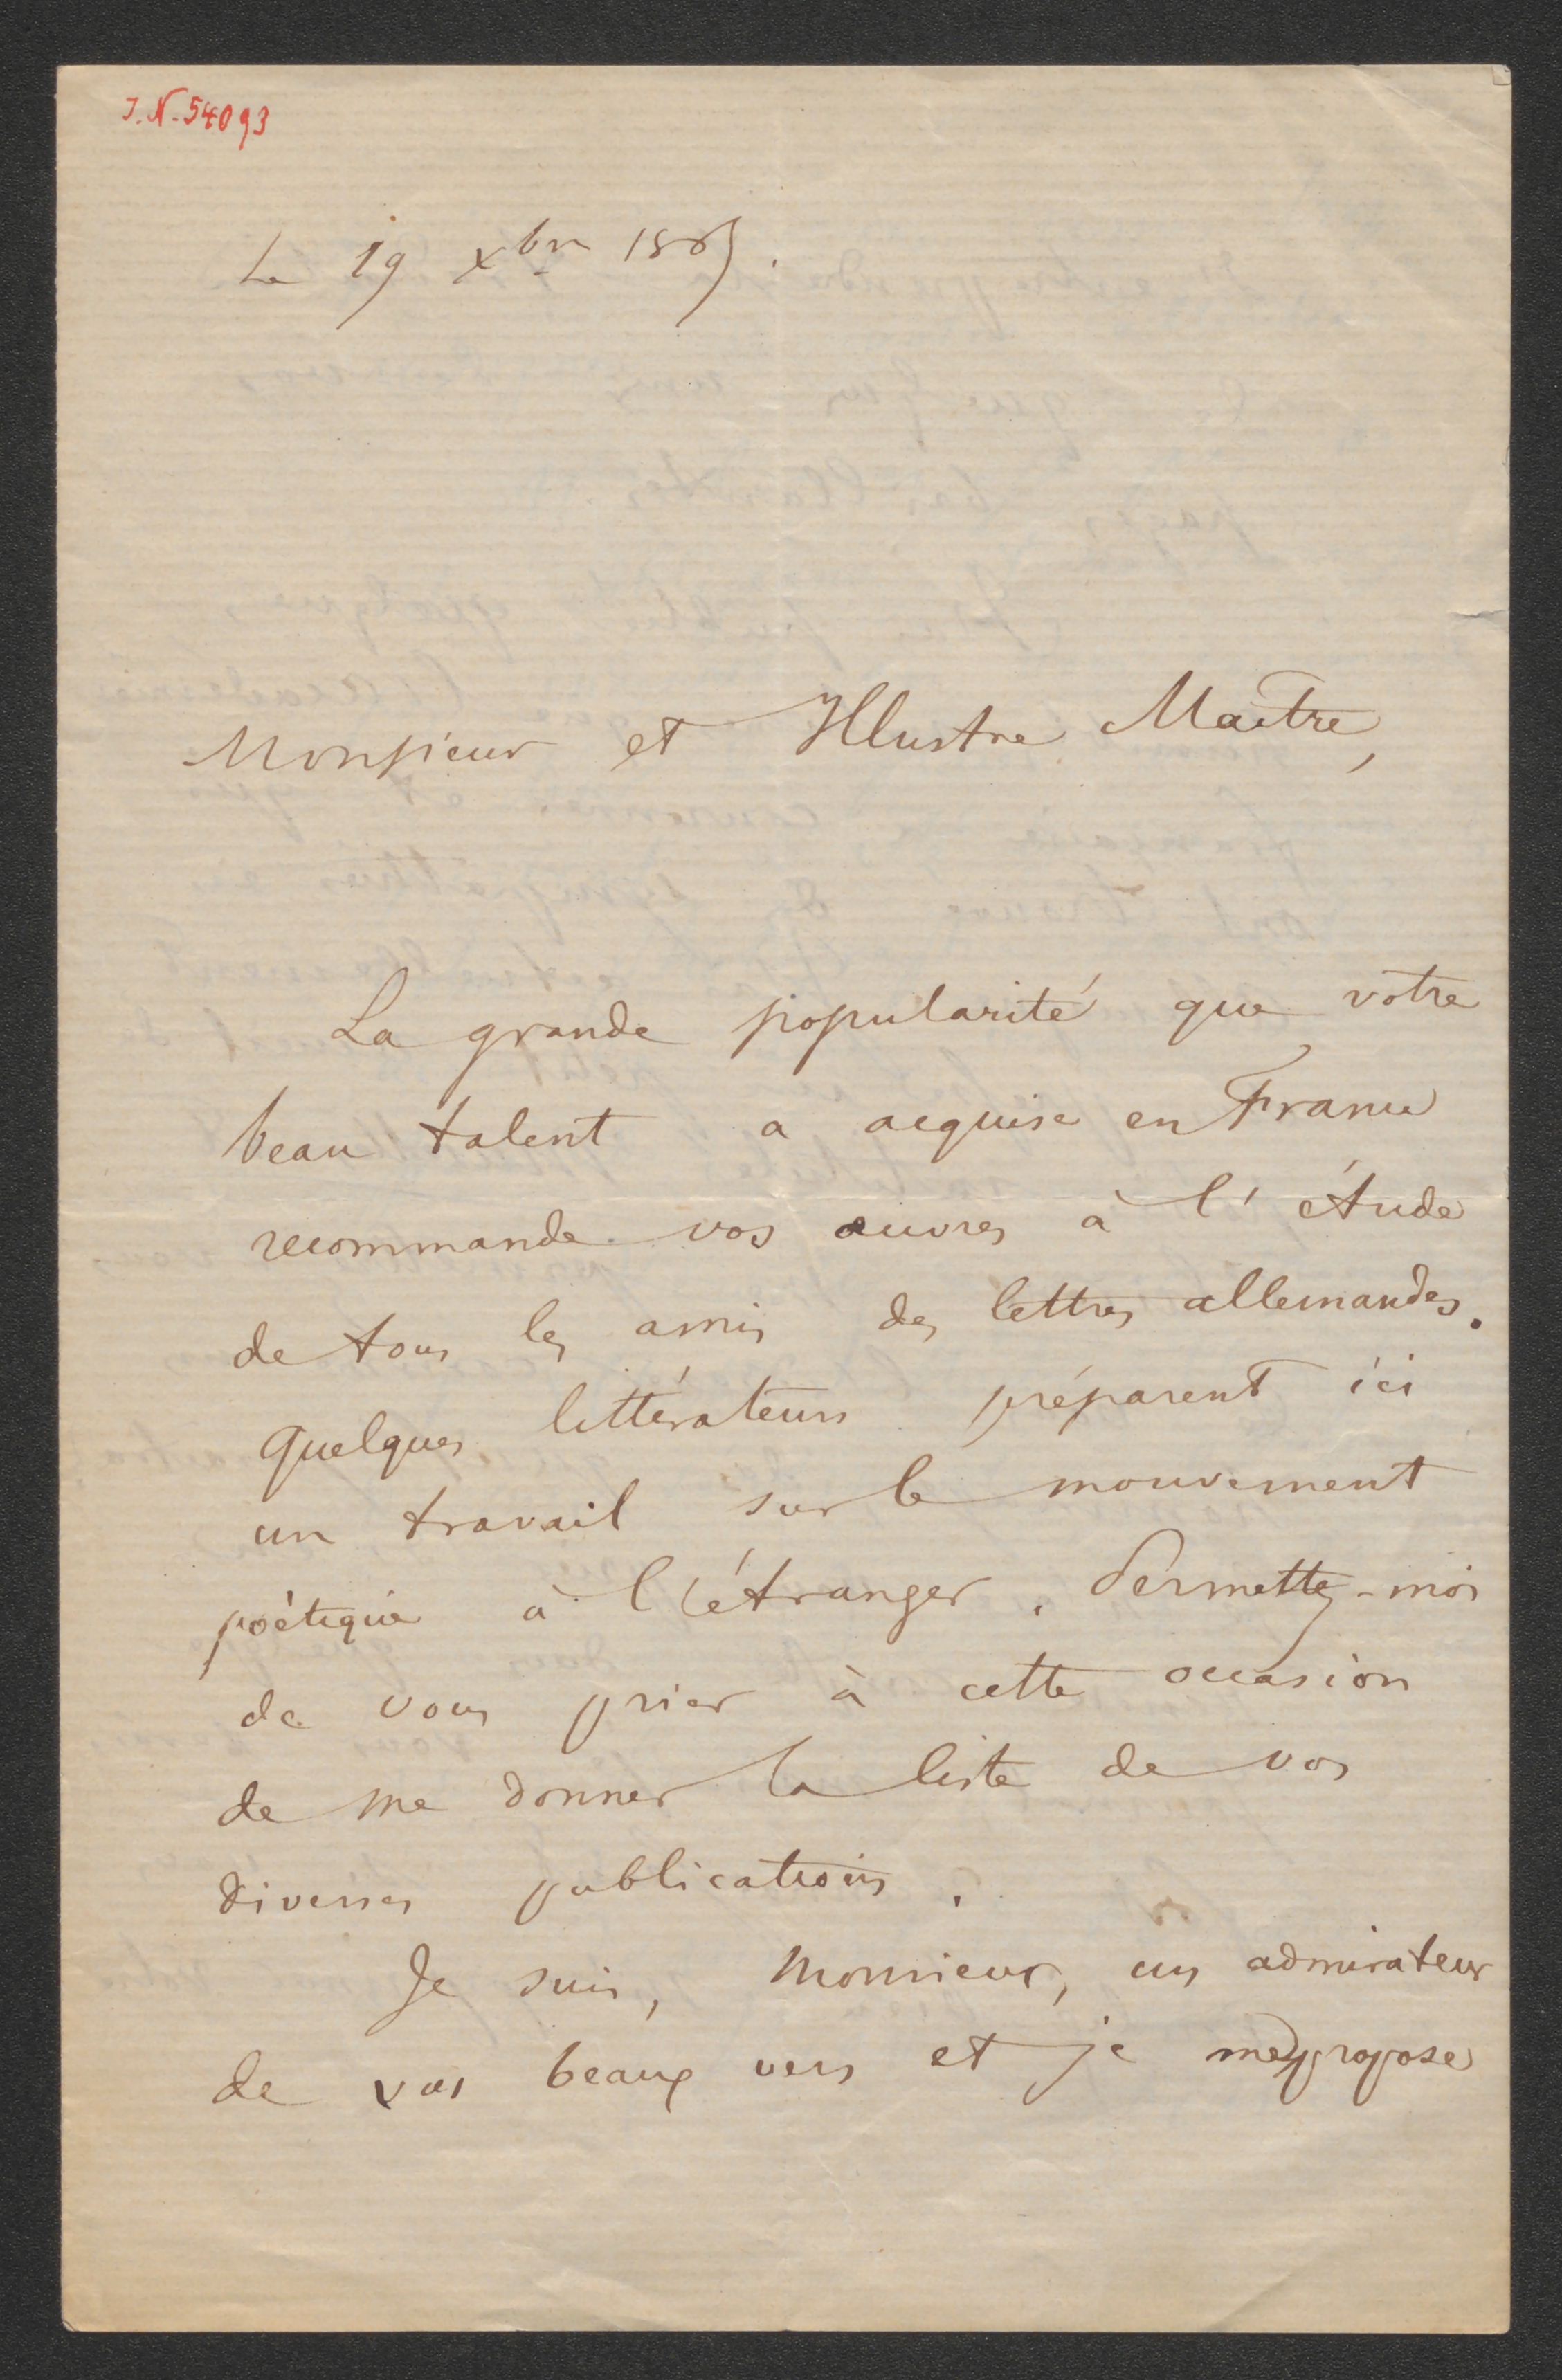 J.N. 54093
Le 19 xbre
Monsieur et Illustre Maître,
La grande popularité que votre
beau talent a acquise en France
recommande vos œuvres à l'étude
de tous les amis des lettres allemandes.
Quelques littérateurs préparent ici
un travail sur le mouvement
poétique à l'étranger. Permettez-moi
de vous prier à cette occasion
de me donner la liste de vos
diverses publications.
Je suis, Monsieur, un admirateur
de vos beaux vers et je me propose